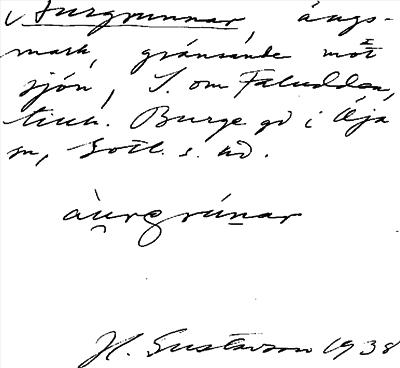 Aurgrunnar, ängs-
mark, gränsande mot
sjön, S. om Faludden,
tillh. Burge gd i Öja
sn, Gotl. s. hd.
àurgrúnar
H. Gustavson 1938